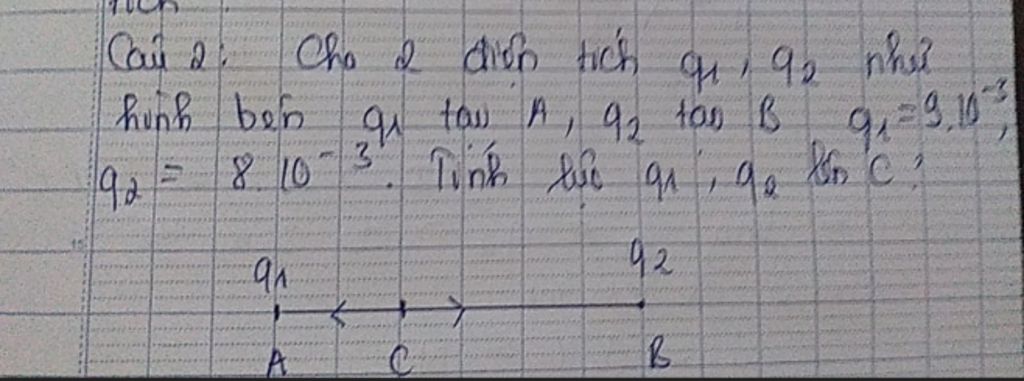 Câu 2: Cho 2 điện tích q1, q2 như
hình bên q1 tại A, q2 tại B q1 = 9.10⁻³,
q2 = 8.10⁻³. Tính lực q1, q2 lên C?
q1 q2
A C B